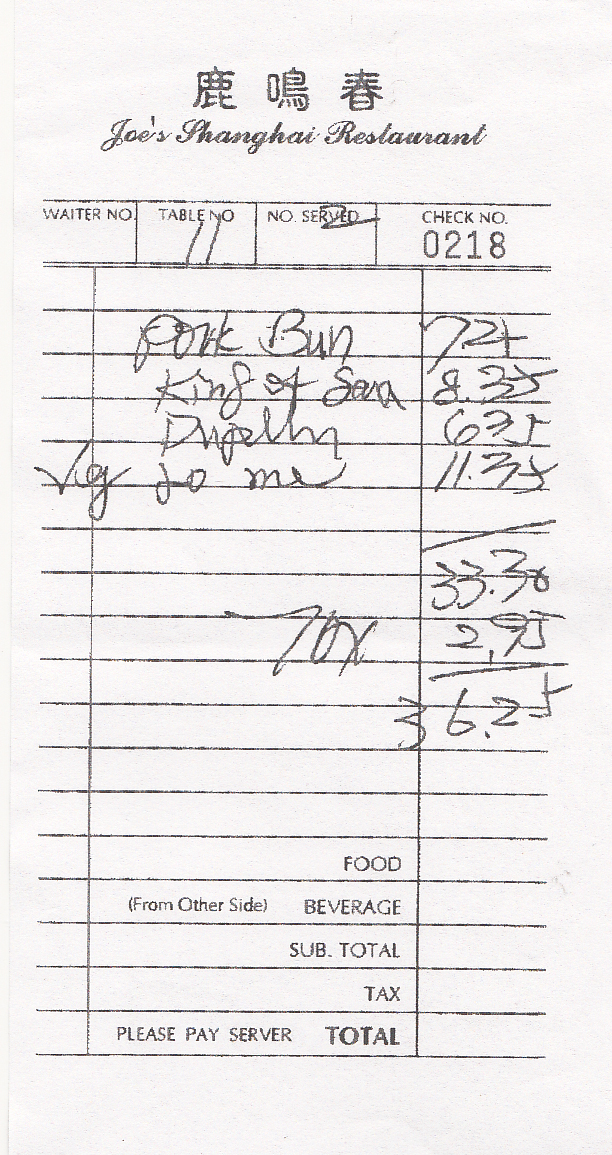 鹿鳴春
Joe's Shanghai Restaurant
WAITER NO. TABLE NO NO. SERVED CHECK NO.
11 2 0218
Pork Bun 7.25
King of Sea 8.35
6.35
Veg lo me 11.35
33.30
Tax 2.95
36.25
FOOD
(From Other Side) BEVERAGE
SUB. TOTAL
TAX
PLEASE PAY SERVER TOTAL